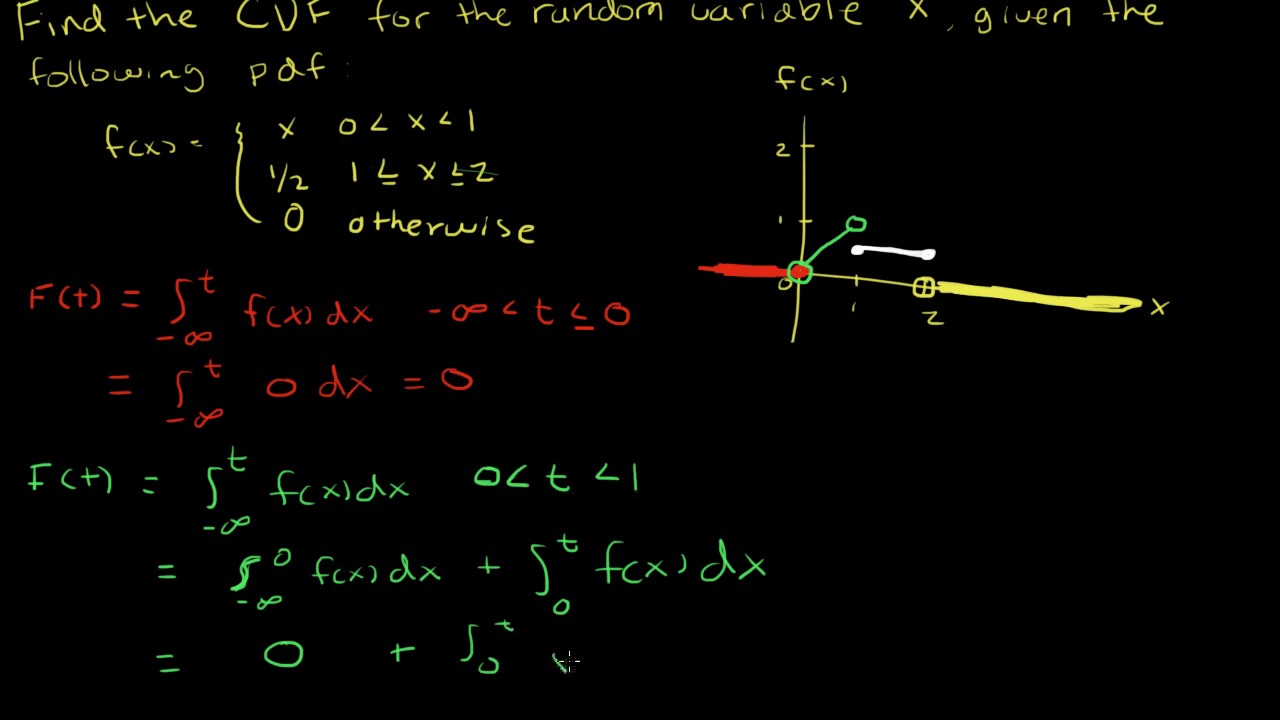 Find the CDF for the random variable X, given the
following pdf:
f(x) = { x 0 < x < 1
1/2 1 ≤ x ≤ 2
0 otherwise
f(x)
2
1
0
1
2
x
F(t) = ∫_{-∞}^{t} f(x) dx -∞ < t ≤ 0
= ∫_{-∞}^{t} 0 dx = 0
F(t) = ∫_{-∞}^{t} f(x) dx 0 < t < 1
= ∫_{-∞}^{0} f(x) dx + ∫_{0}^{t} f(x) dx
= 0 + ∫_{0}^{t}